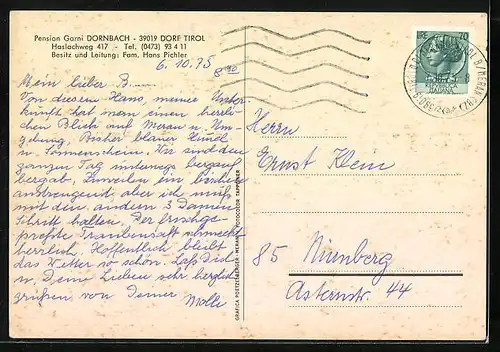 Pension Garni DORNBACH - 39019 DORF TIROL
Haslachweg 417 - Tel. (0473) 93 4 11
Besitz und Leitung: Fam. Hans Pichler
6. 10. 75
Mein lieber B.
Von diesem Haus, meiner Unter-
kunft hat man einen herr-
lichen Blick auf Meran u. Um-
gebung. Bisher blauer Himmel
u. Sonnenschein. Wir sind den
ganzen Tag unterwegs bergauf
bergab. Zuweilen ein bißchen
anstrengend aber ich muß
mit den andern 3 Damen
Schritt halten. Der frischge-
preßte Traubensaft schmeckt
herrlich. Hoffentlich bleibt
das Wetter so schön. Laß Dich
u. Deine Lieben sehr herzlich
grüßen von Deiner
Molli
Herrn
Ernst Klem
85 Nürnberg
Asternstr. 44
70